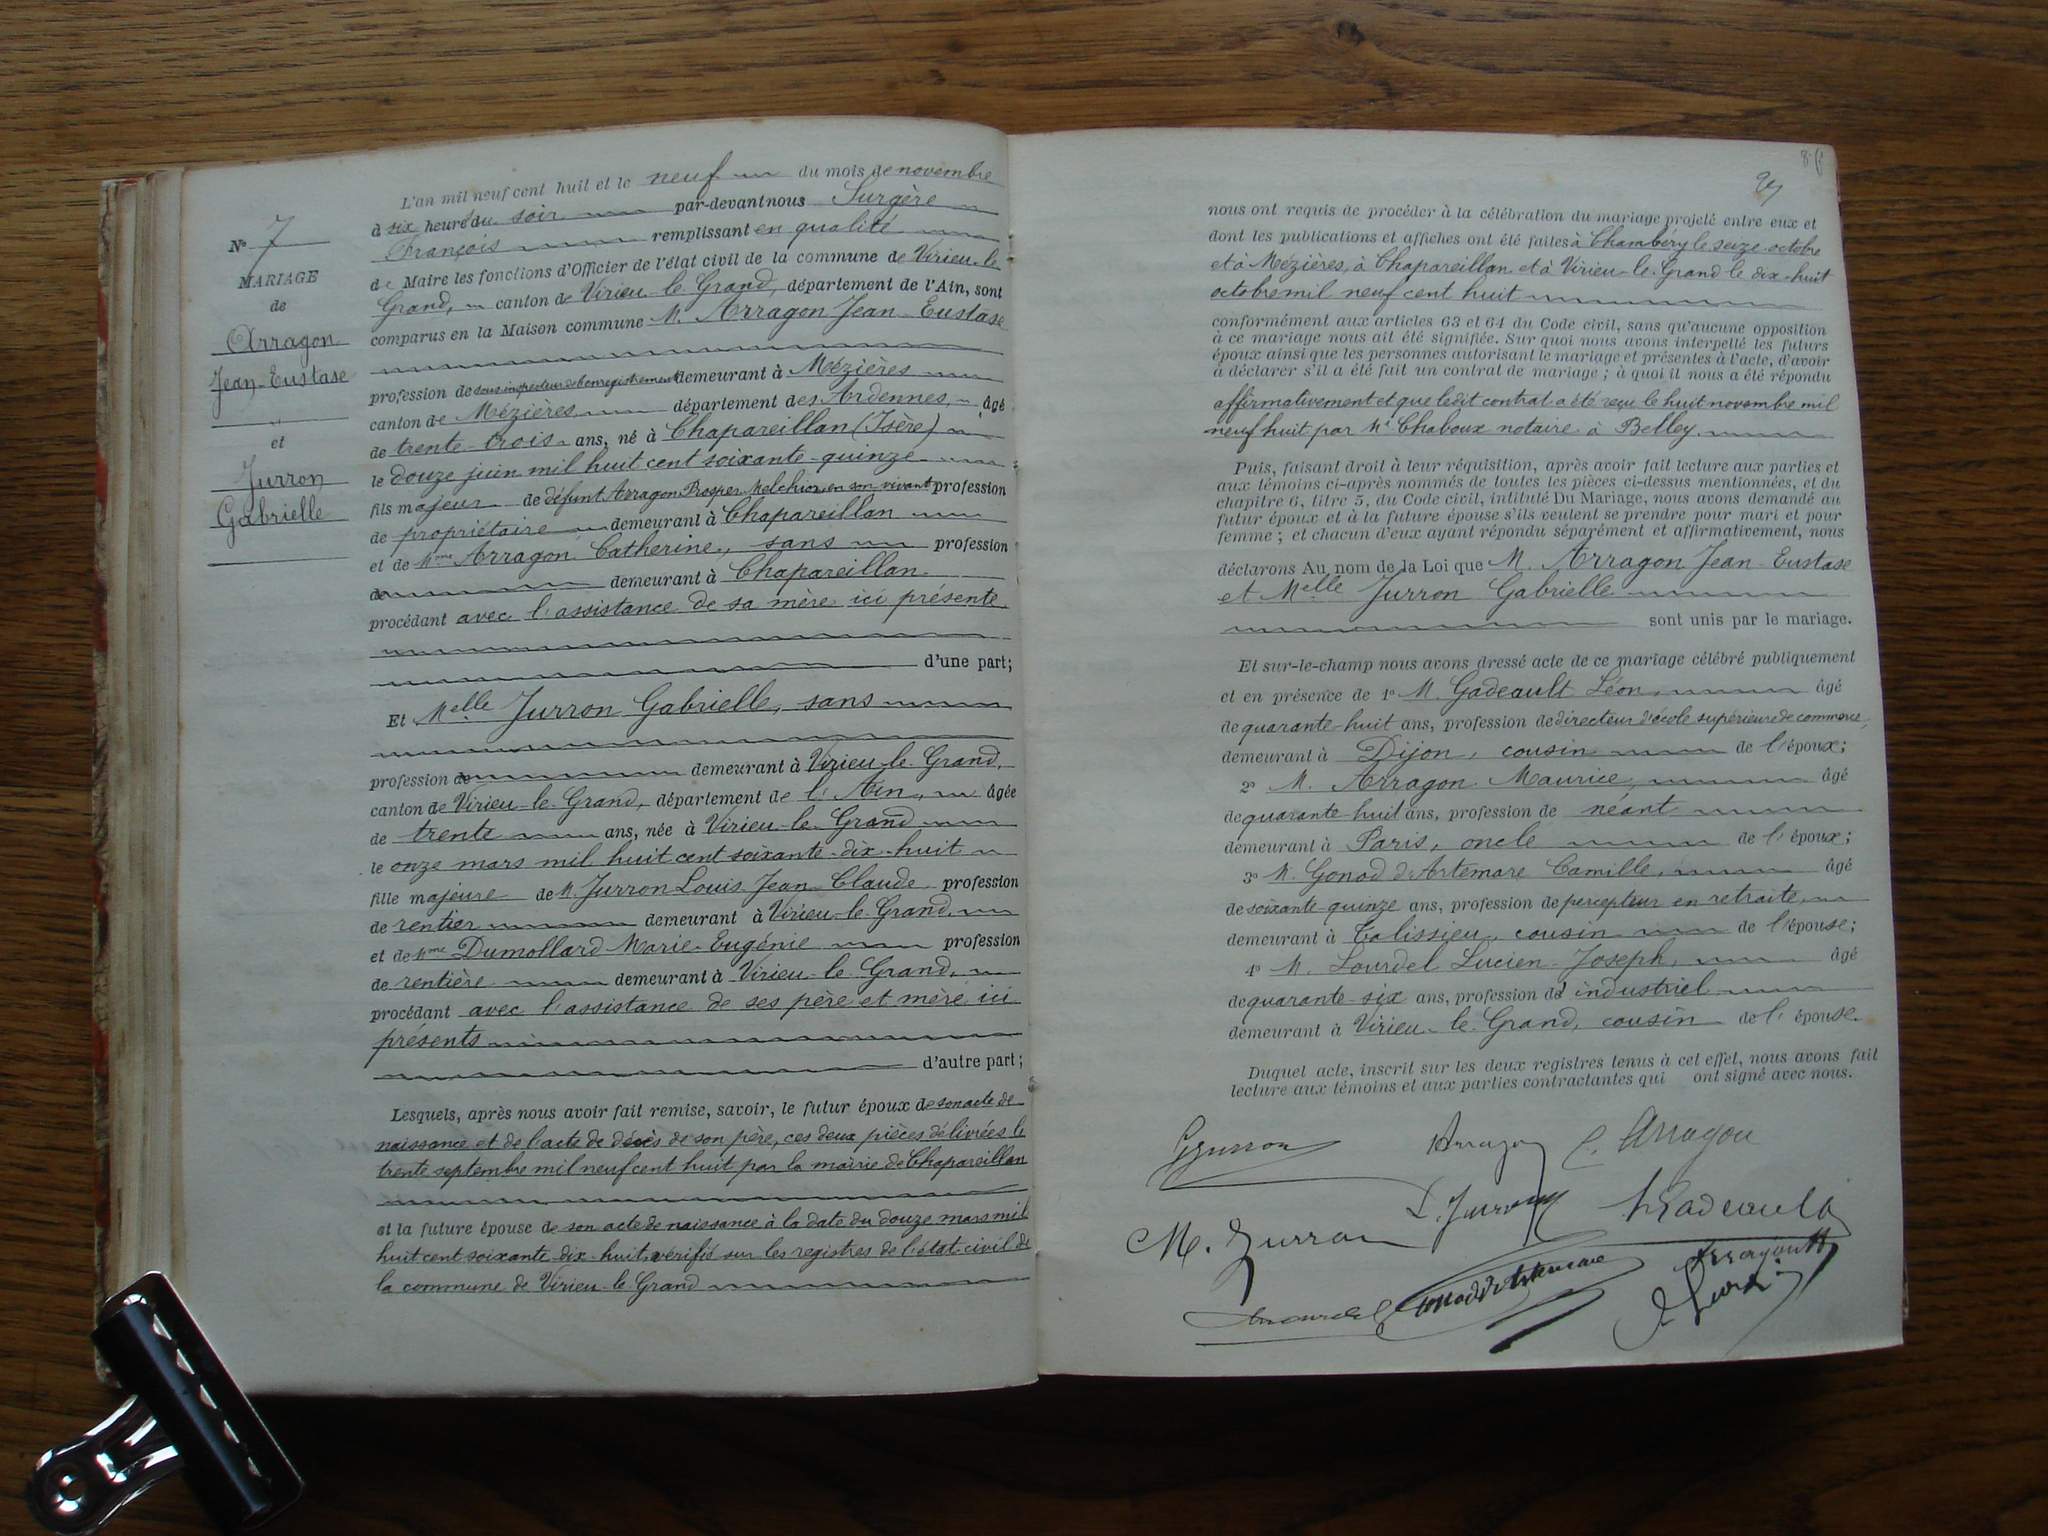 N° 7
MARIAGE
de
Arragon
Jean-Eustase
et
Jurron
Gabrielle
L'an mil neuf cent huit et le neuf du mois de novembre
à six heures du soir par-devant nous Surgère
François remplissant en qualité
de Maire les fonctions d'Officier de l'état civil de la commune de Virieu-le-
Grand, canton de Virieu-le-Grand, département de l'Ain, sont
comparus en la Maison commune M. Arragon Jean-Eustase
profession de sous inspecteur de l'enregistrement demeurant à Mézières
canton de Mézières département des Ardennes, âgé
de trente-trois ans, né à Chapareillan (Isère)
le douze juin mil huit cent soixante-quinze
fils majeur de défunt Arragon Prosper Melchior, en son vivant profession
de propriétaire demeurant à Chapareillan
et de Mme Arragon Catherine, sans profession
de demeurant à Chapareillan
procédant avec l'assistance de sa mère ici présente
d'une part;
Et Melle Jurron Gabrielle, sans
profession de demeurant à Virieu-le-Grand,
canton de Virieu-le-Grand, département de l'Ain, âgée
de trente ans, née à Virieu-le-Grand
le onze mars mil huit cent soixante-dix-huit
fille majeure de M. Jurron Louis Jean-Claude profession
de rentier demeurant à Virieu-le-Grand,
et de Mme Dumollard Marie-Eugénie profession
de rentière demeurant à Virieu-le-Grand,
procédant avec l'assistance de ses père et mère ici
présents
d'autre part;
Lesquels, après nous avoir fait remise, savoir, le futur époux de son acte de
naissance et de l'acte de décès de son père, ces deux pièces délivrées le
trente septembre mil neuf cent huit par la mairie de Chapareillan
et la future épouse de son acte de naissance à la date du douze mars mil
huit cent soixante-dix-huit, vérifié sur les registres de l'état-civil de
la commune de Virieu-le-Grand
nous ont requis de procéder à la célébration du mariage projeté entre eux et
dont les publications et affiches ont été faites à Chambéry le seize octobre
et à Mézières, à Chapareillan et à Virieu-le-Grand le dix-huit
octobre mil neuf cent huit
conformément aux articles 63 et 64 du Code civil, sans qu'aucune opposition
à ce mariage nous ait été signifiée. Sur quoi nous avons interpellé les futurs
époux ainsi que les personnes autorisant le mariage et présentes à l'acte, d'avoir
à déclarer s'il a été fait un contrat de mariage; à quoi il nous a été répondu
affirmativement et que ledit contrat a été reçu le huit novembre mil
neuf huit par Me Chaboux notaire à Belley.
Puis, faisant droit à leur réquisition, après avoir fait lecture aux parties et
aux témoins ci-après nommés de toutes les pièces ci-dessus mentionnées, et du
chapitre 6, titre 5, du Code civil, intitulé Du Mariage, nous avons demandé au
futur époux et à la future épouse s'ils veulent se prendre pour mari et pour
femme; et chacun d'eux ayant répondu séparément et affirmativement, nous
déclarons Au nom de la Loi que M. Arragon Jean-Eustase
et Melle Jurron Gabrielle
sont unis par le mariage.
Et sur-le-champ nous avons dressé acte de ce mariage célébré publiquement
et en présence de 1° M. Gadeault Léon, âgé
de quarante-huit ans, profession de directeur d'école supérieure de commerce,
demeurant à Dijon, cousin de l'époux;
2° M. Arragon Maurice, âgé
de quarante-huit ans, profession de néant
demeurant à Paris, oncle de l'époux;
3° M. Gonod d'Artemare Camille, âgé
de soixante-quinze ans, profession de percepteur en retraite,
demeurant à Talissieu, cousin de l'épouse;
4° M. Lourdel Lucien-Joseph, âgé
de quarante-six ans, profession d'industriel
demeurant à Virieu-le-Grand, cousin de l'épouse.
Duquel acte, inscrit sur les deux registres tenus à cet effet, nous avons fait
lecture aux témoins et aux parties contractantes qui ont signé avec nous.
GJurron Arragon C. Arragon
L. Jurron
M. Jurron